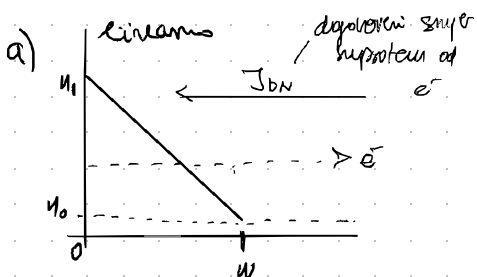 a)
linearno
dogovoreni smjer
suprotan od
e⁻
J_DN
n₁
e⁻
n₀
0
W